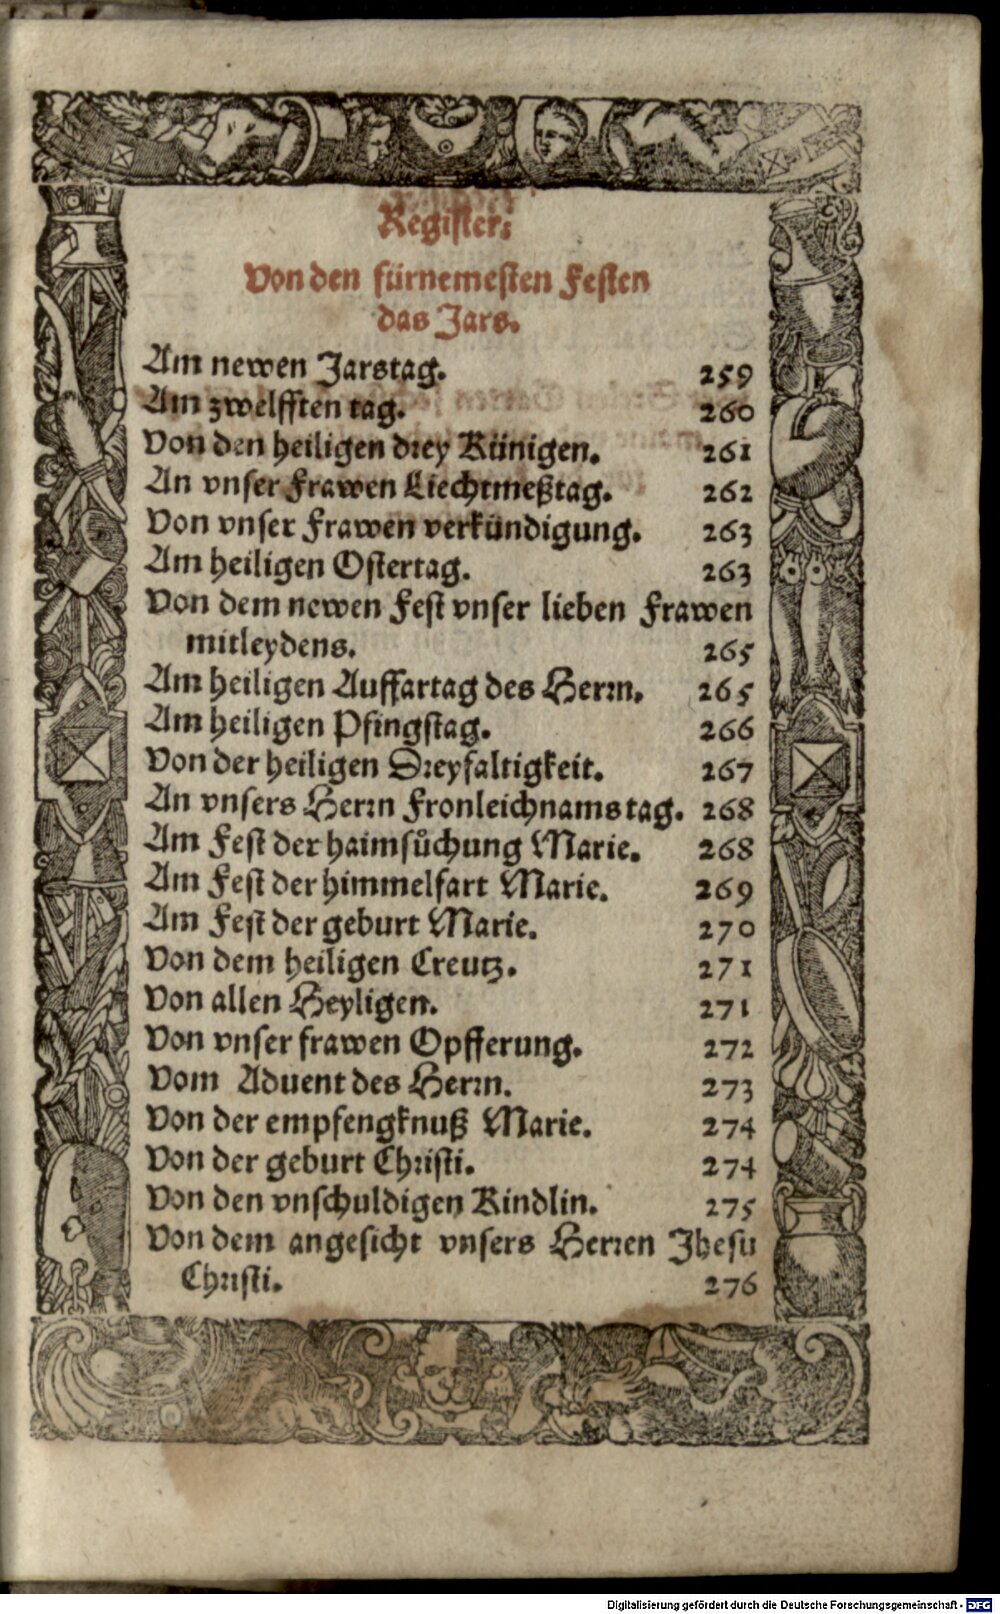 Register:
Von den fürnemesten Festen
das Jars.
Am newen Jarstag. 259
Am zwelfften tag. 260
Von den heiligen drey Künigen. 261
An vnser Frawen Liechtmeßtag. 262
Von vnser Frawen verkündigung. 263
Am heiligen Ostertag. 263
Von dem newen Fest vnser lieben Frawen
mitleydens. 265
Am heiligen Auffartag des Herrn. 265
Am heiligen Pfingstag. 266
Von der heiligen Dreyfaltigkeit. 267
An vnsers Herrn Fronleichnamstag. 268
Am Fest der haimsůchung Marie. 268
Am Fest der himmelfart Marie. 269
Am Fest der geburt Marie. 270
Von dem heiligen Creutz. 271
Von allen Heyligen. 271
Von vnser frawen Opfferung. 272
Vom Aduent des Herrn. 273
Von der empfengknuß Marie. 274
Von der geburt Christi. 274
Von den vnschuldigen Kindlin. 275
Von dem angesicht vnsers Herren Jhesu
Christi. 276
Digitalisierung gefördert durch die Deutsche Forschungsgemeinschaft - DFG